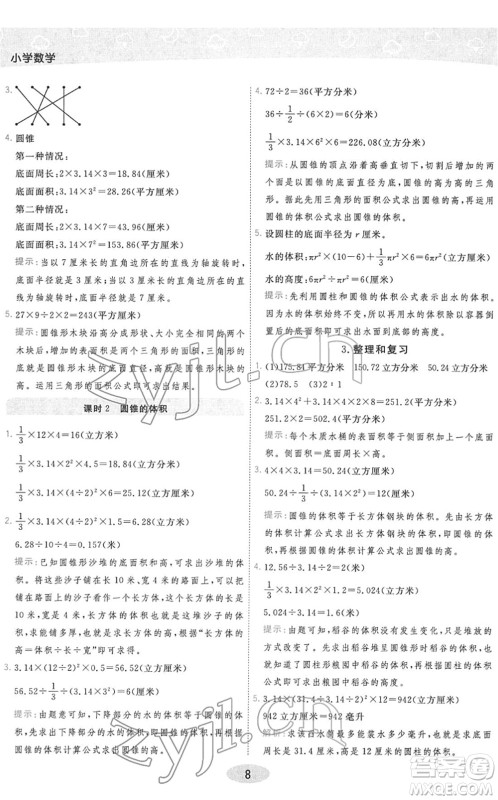 小学数学
3.
4. 圆锥
第一种情况:
底面周长:2×3.14×3=18.84(厘米)
底面面积:3.14×3²=28.26(平方厘米)
第二种情况:
底面周长:2×3.14×7=43.96(厘米)
底面面积:3.14×7²=153.86(平方厘米)
提示:当以 7 厘米长的直角边所在的直线为轴旋转时,
底面半径就是 3 厘米;当以 3 厘米长的直角边所在的
直线为轴旋转时,底面半径就是 7 厘米。
5. 27×9÷2×2=243(平方厘米)
提示:圆锥形木块沿高分成形状、大小完全相同的两个
木块后,增加的两个面是两个完全相同的三角形,三角
形的底是圆锥的底面直径,高是圆锥形木块的高。
运用三角形的面积公式即可求出结果。
课时 2 圆锥的体积
1. 1/3×12×4=16(立方分米)
1/3×3.14×2²×4.5=18.84(立方分米)
1/3×3.14×(4÷2)²×6=25.12(立方厘米)
2. 1/3×3.14×(4÷2)²×1.5=6.28(立方米)
6.28÷10÷4=0.157(米)
提示:已知圆锥形沙堆的底面积和高,可求出沙堆的体
积。将这些沙子铺在长 10 米、宽 4 米的路面上,可以
看作一个长方体,这个长方体的体积与这堆沙子的体
积相等。求能铺多厚就是求长方体的高,根据“长方体
的高=长方体的体积÷长÷宽”即可求出。
3. 3.14×(12÷2)²×0.5=56.52(立方厘米)
56.52÷1/3÷9=18.84(平方厘米)
提示:由题意可知,下降部分的水的体积等于圆锥的体
积。先求出下降部分的水的体积,即圆锥的体积,再根
据圆锥的体积计算公式求出圆锥的底面积。
4. 72÷2=36(平方分米)
36÷1/2÷6=12(分米)
1/3×3.14×(12÷2)²×6=226.08(立方分米)
提示:从圆锥的顶点沿着高垂直切下,切面是三角
形,三角形的底是圆锥的底面直径,高是圆锥的高。因
此,先用三角形的面积公式求出圆锥的底面直径,再根
据圆锥的体积公式求出圆锥的体积。
5. 设圆柱的底面半径为 r 厘米。
水的体积:πr²×(10-6)+1/3πr²×6=6πr²(立方厘米)
水的高度:6πr²÷πr²=6(厘米)
提示:先利用圆柱和圆锥的体积公式表示出水的体积。
因为容器倒置前后,水的体积不变,所以再用水的体积
除以圆柱的底面积即可求出水的高度。
3. 整理和复习
1. (1)175.84平方厘米 150.72平方厘米 50.24立方分米
(2)78.5 (3)2∶1
2. 3.14×4²×4+3.14×4×2×8=251.2(平方分米)
251.2×2=502.4(千克)
3. 4×4×3.14=50.24(立方厘米)
50.24÷1/3÷(3.14×2²)=12(厘米)
提示:圆锥的体积等于长方体钢块的体积。先根据长
方体的体积计算公式求出长方体钢块的体积,再根据
圆锥的体积计算公式求出圆锥的高。
4. 1/3×3.14×(4÷2)²×1.2=5.024(立方米)
5.024÷3.14=1.6(米)
提示:由题意可知,稻谷的体积没有改变,改变的是堆放
的方式。先根据圆锥的体积计算公式求出稻谷的体积,
也就是知道圆柱形粮囤中稻谷的体积,再根据圆柱的体
积计算公式求出稻谷的高度。
5. 3.14×(31.4÷3.14÷2)²×12=942(立方厘米)
942立方厘米=942毫升
解析:求该白水筒最多能装水多少毫升,先求出底
面周长是31.4厘米,高是12厘米的圆柱的体积。
8
答案圈
MXQE.COM
zyjl.cn
zyjl.cn